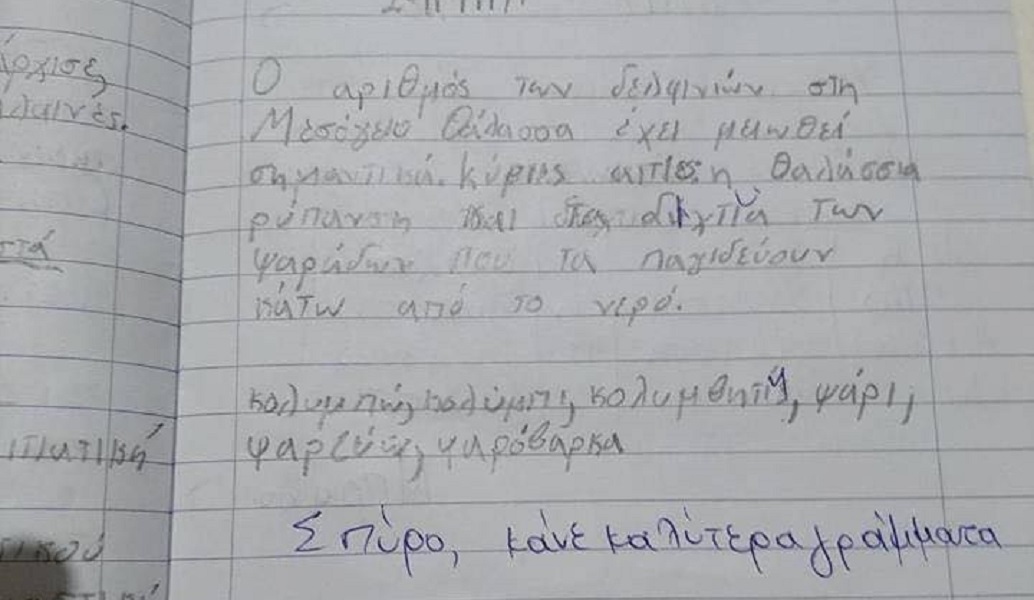 Ο αριθμός των δελφινιών στη
Μεσόγειο Θάλασσα έχει μειωθεί
σημαντικά. Κύριες αιτίες: η θαλάσσια
ρύπανση και δίχτυα των
ψαράδων που τα παγιδεύουν
κάτω από το νερό.
κολυμπώ, κολύμπι, κολυμβητής, ψάρι,
ψαρεύω, ψαρόβαρκα
Σπύρο, κάνε καλύτερα γράμματα